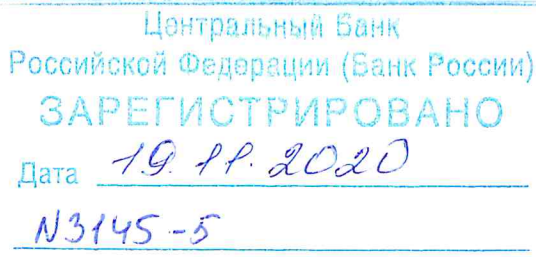 Центральный Банк
Российской Федерации (Банк России)
ЗАРЕГИСТРИРОВАНО
Дата 19.11.2020
N3145-5